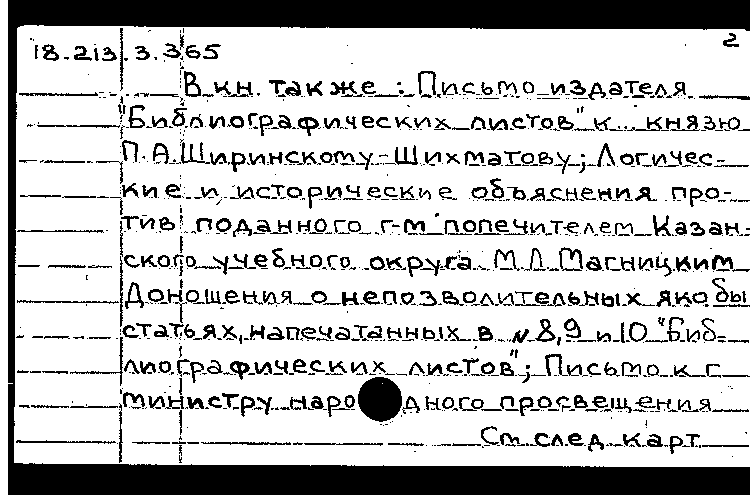 18.213.3.365 2
В кн. также: Письмо издателя
"Библиографических листов" к... князю
П.А.Ширинскому-Шихматову; Логичес-
кие и исторические объяснения про-
тив поданного г-м попечителем Казан-
ского учебного округа М.Л.Магницким
Доношения о непозволительных якобы
статьях, напечатанных в №8,9 и 10 "Биб-
лиографических листов"; Письмо к г.
министру народного просвещения
См. след. карт.